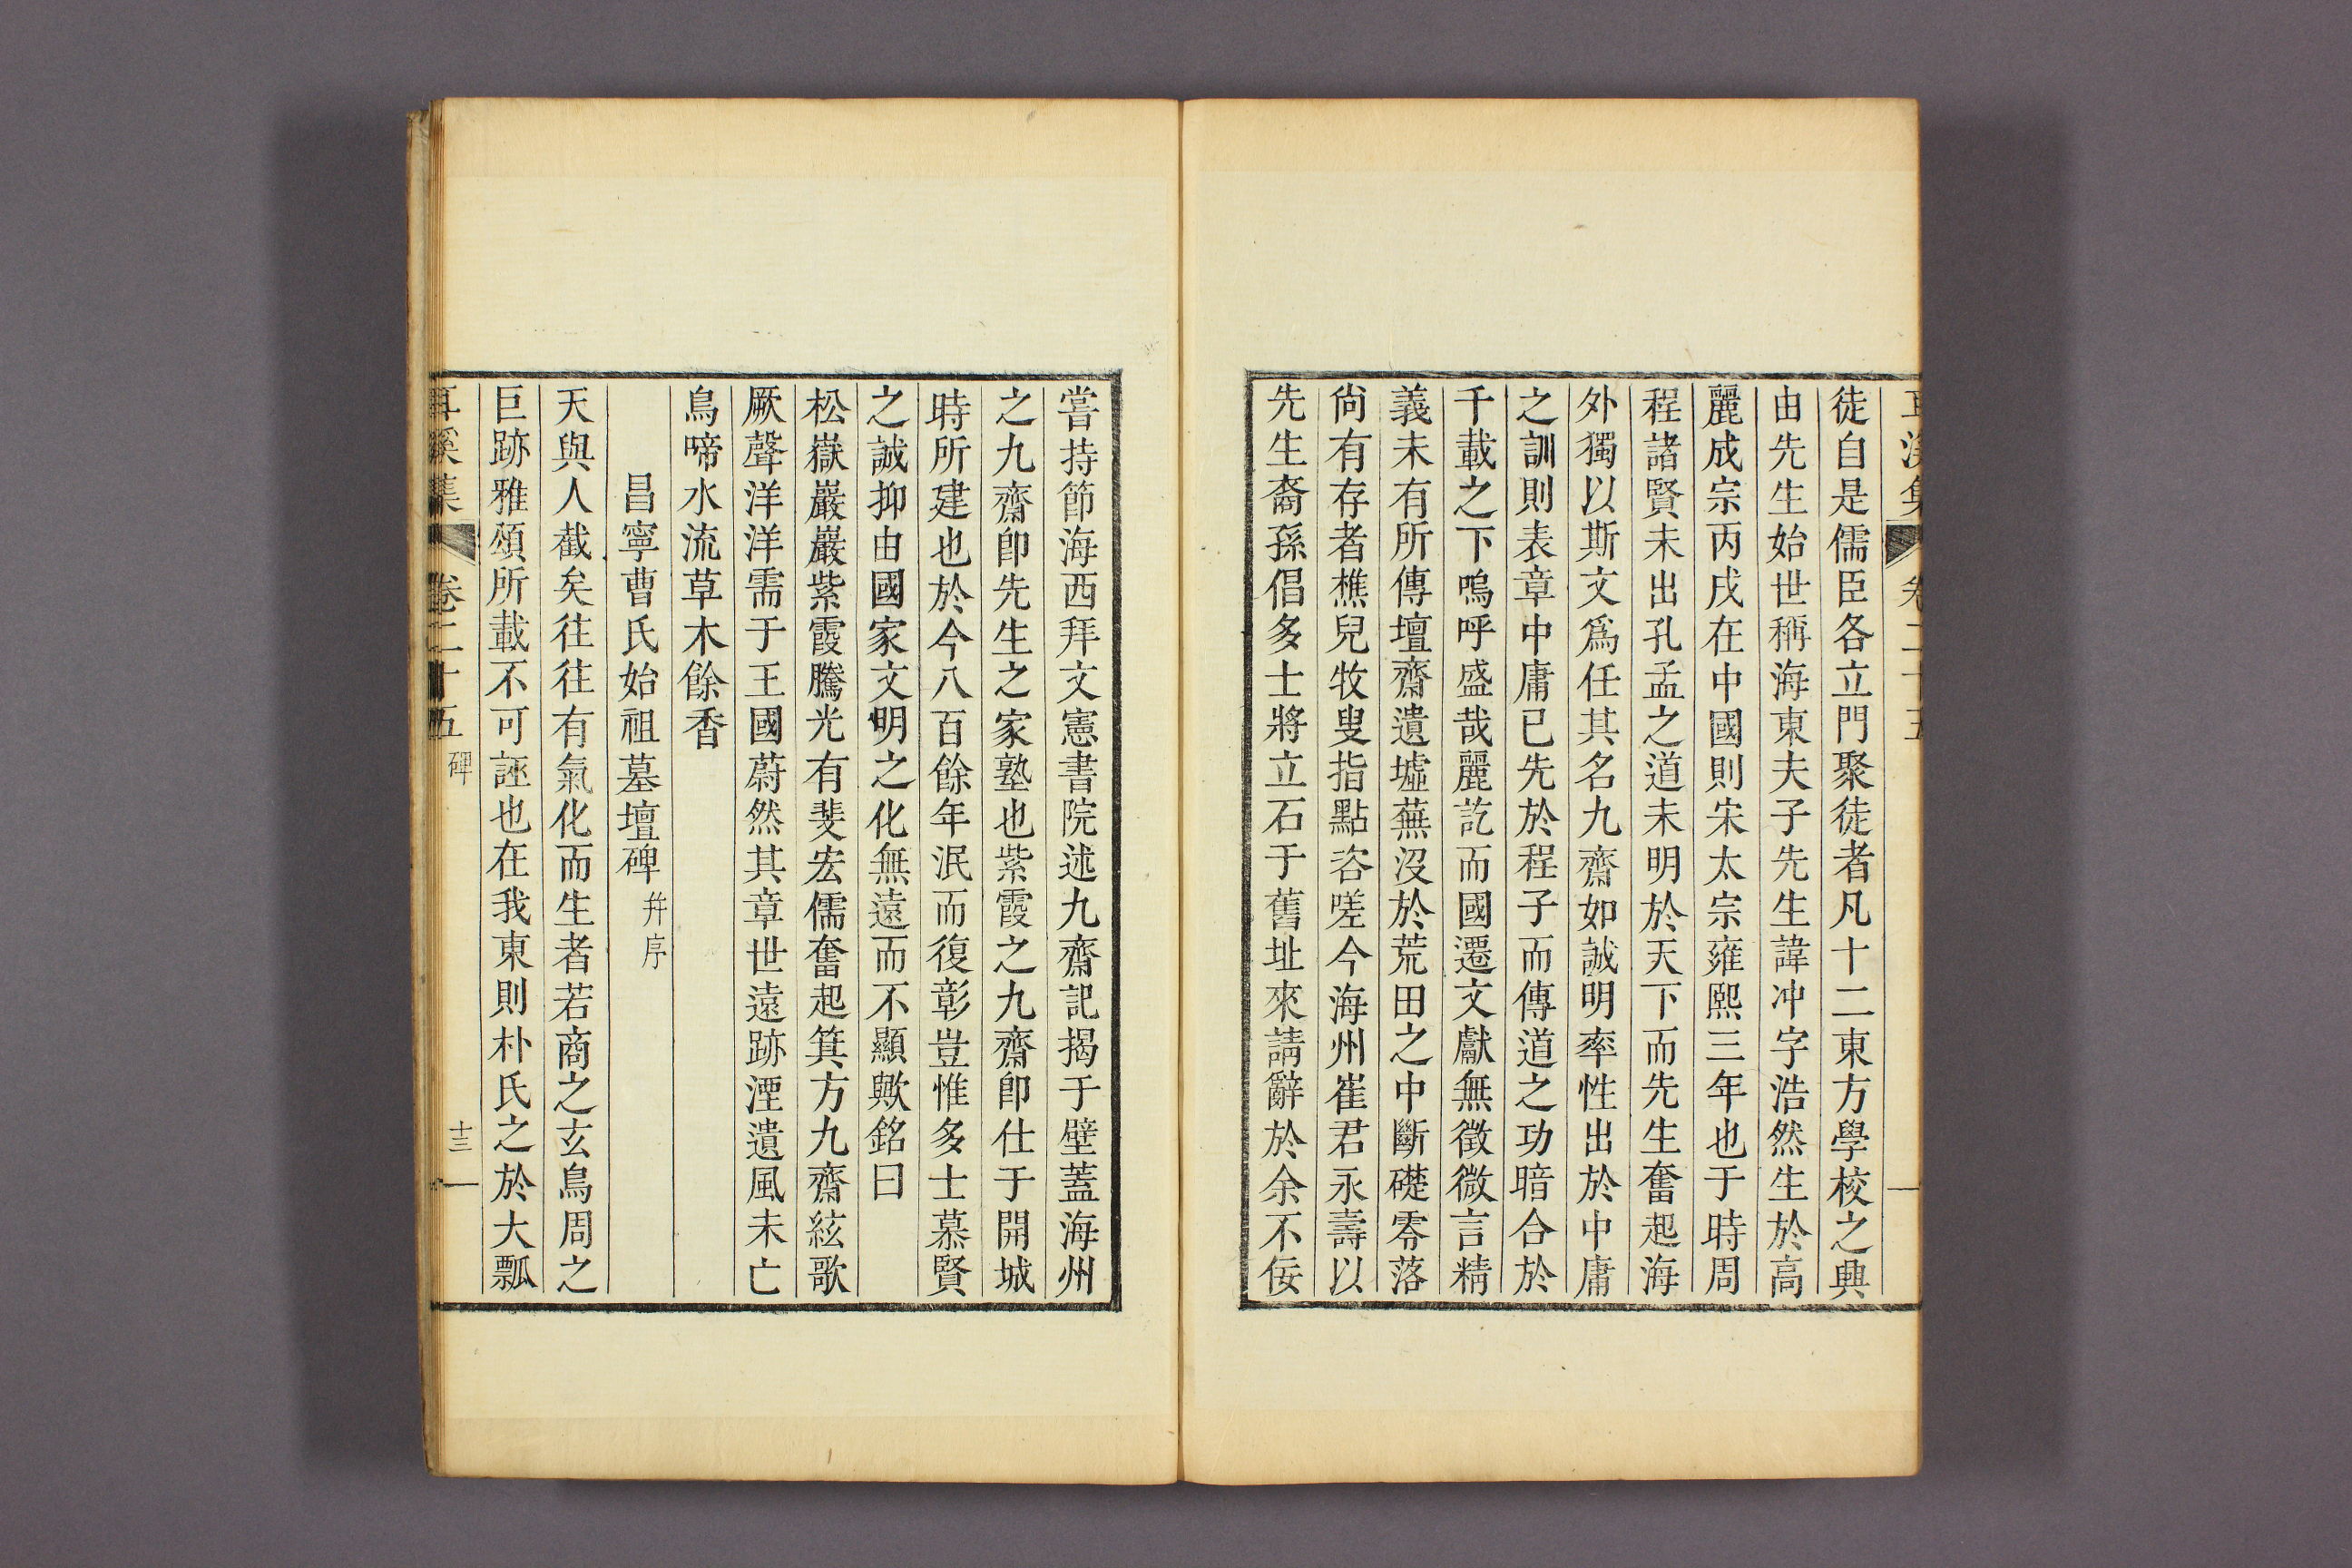 徒自是儒臣各立門聚徒者凡十二東方學校之典
由先生始世稱海東夫子先生諱冲字浩然生於高
麗成宗丙戌在中國則宋太宗雍熙三年也于時周
程諸賢未出孔孟之道未明於天下而先生奮起海
外獨以斯文爲任其名九齋如誠明率性出於中庸
之訓則表章中庸已先於程子而傳道之功暗合於
千載之下嗚呼盛哉麗訖而國遷文獻無徵微言精
義未有所傳壇齋遺墟蕪沒於荒田之中斷礎零落
尙有存者樵兒牧叟指點咨嗟今海州崔君永壽以
先生裔孫倡多士將立石于舊址來請辭於余不佞
嘗持節海西拜文憲書院述九齋記揭于壁蓋海州
之九齋卽先生之家塾也紫霞之九齋卽仕于開城
時所建也於今八百餘年泯而復彰豈惟多士慕賢
之誠抑由國家文明之化無遠而不顯歟銘曰
松嶽巖巖紫霞騰光有斐宏儒奮起箕方九齋絃歌
厥聲洋洋需于王國蔚然其章世遠跡湮遺風未亡
鳥啼水流草木餘香
昌寧曹氏始祖墓壇碑 幷序
天與人截矣往往有氣化而生者若商之玄鳥周之
巨跡雅頌所載不可誣也在我東則朴氏之於大瓢
耳溪集 卷二十五 碑 十三